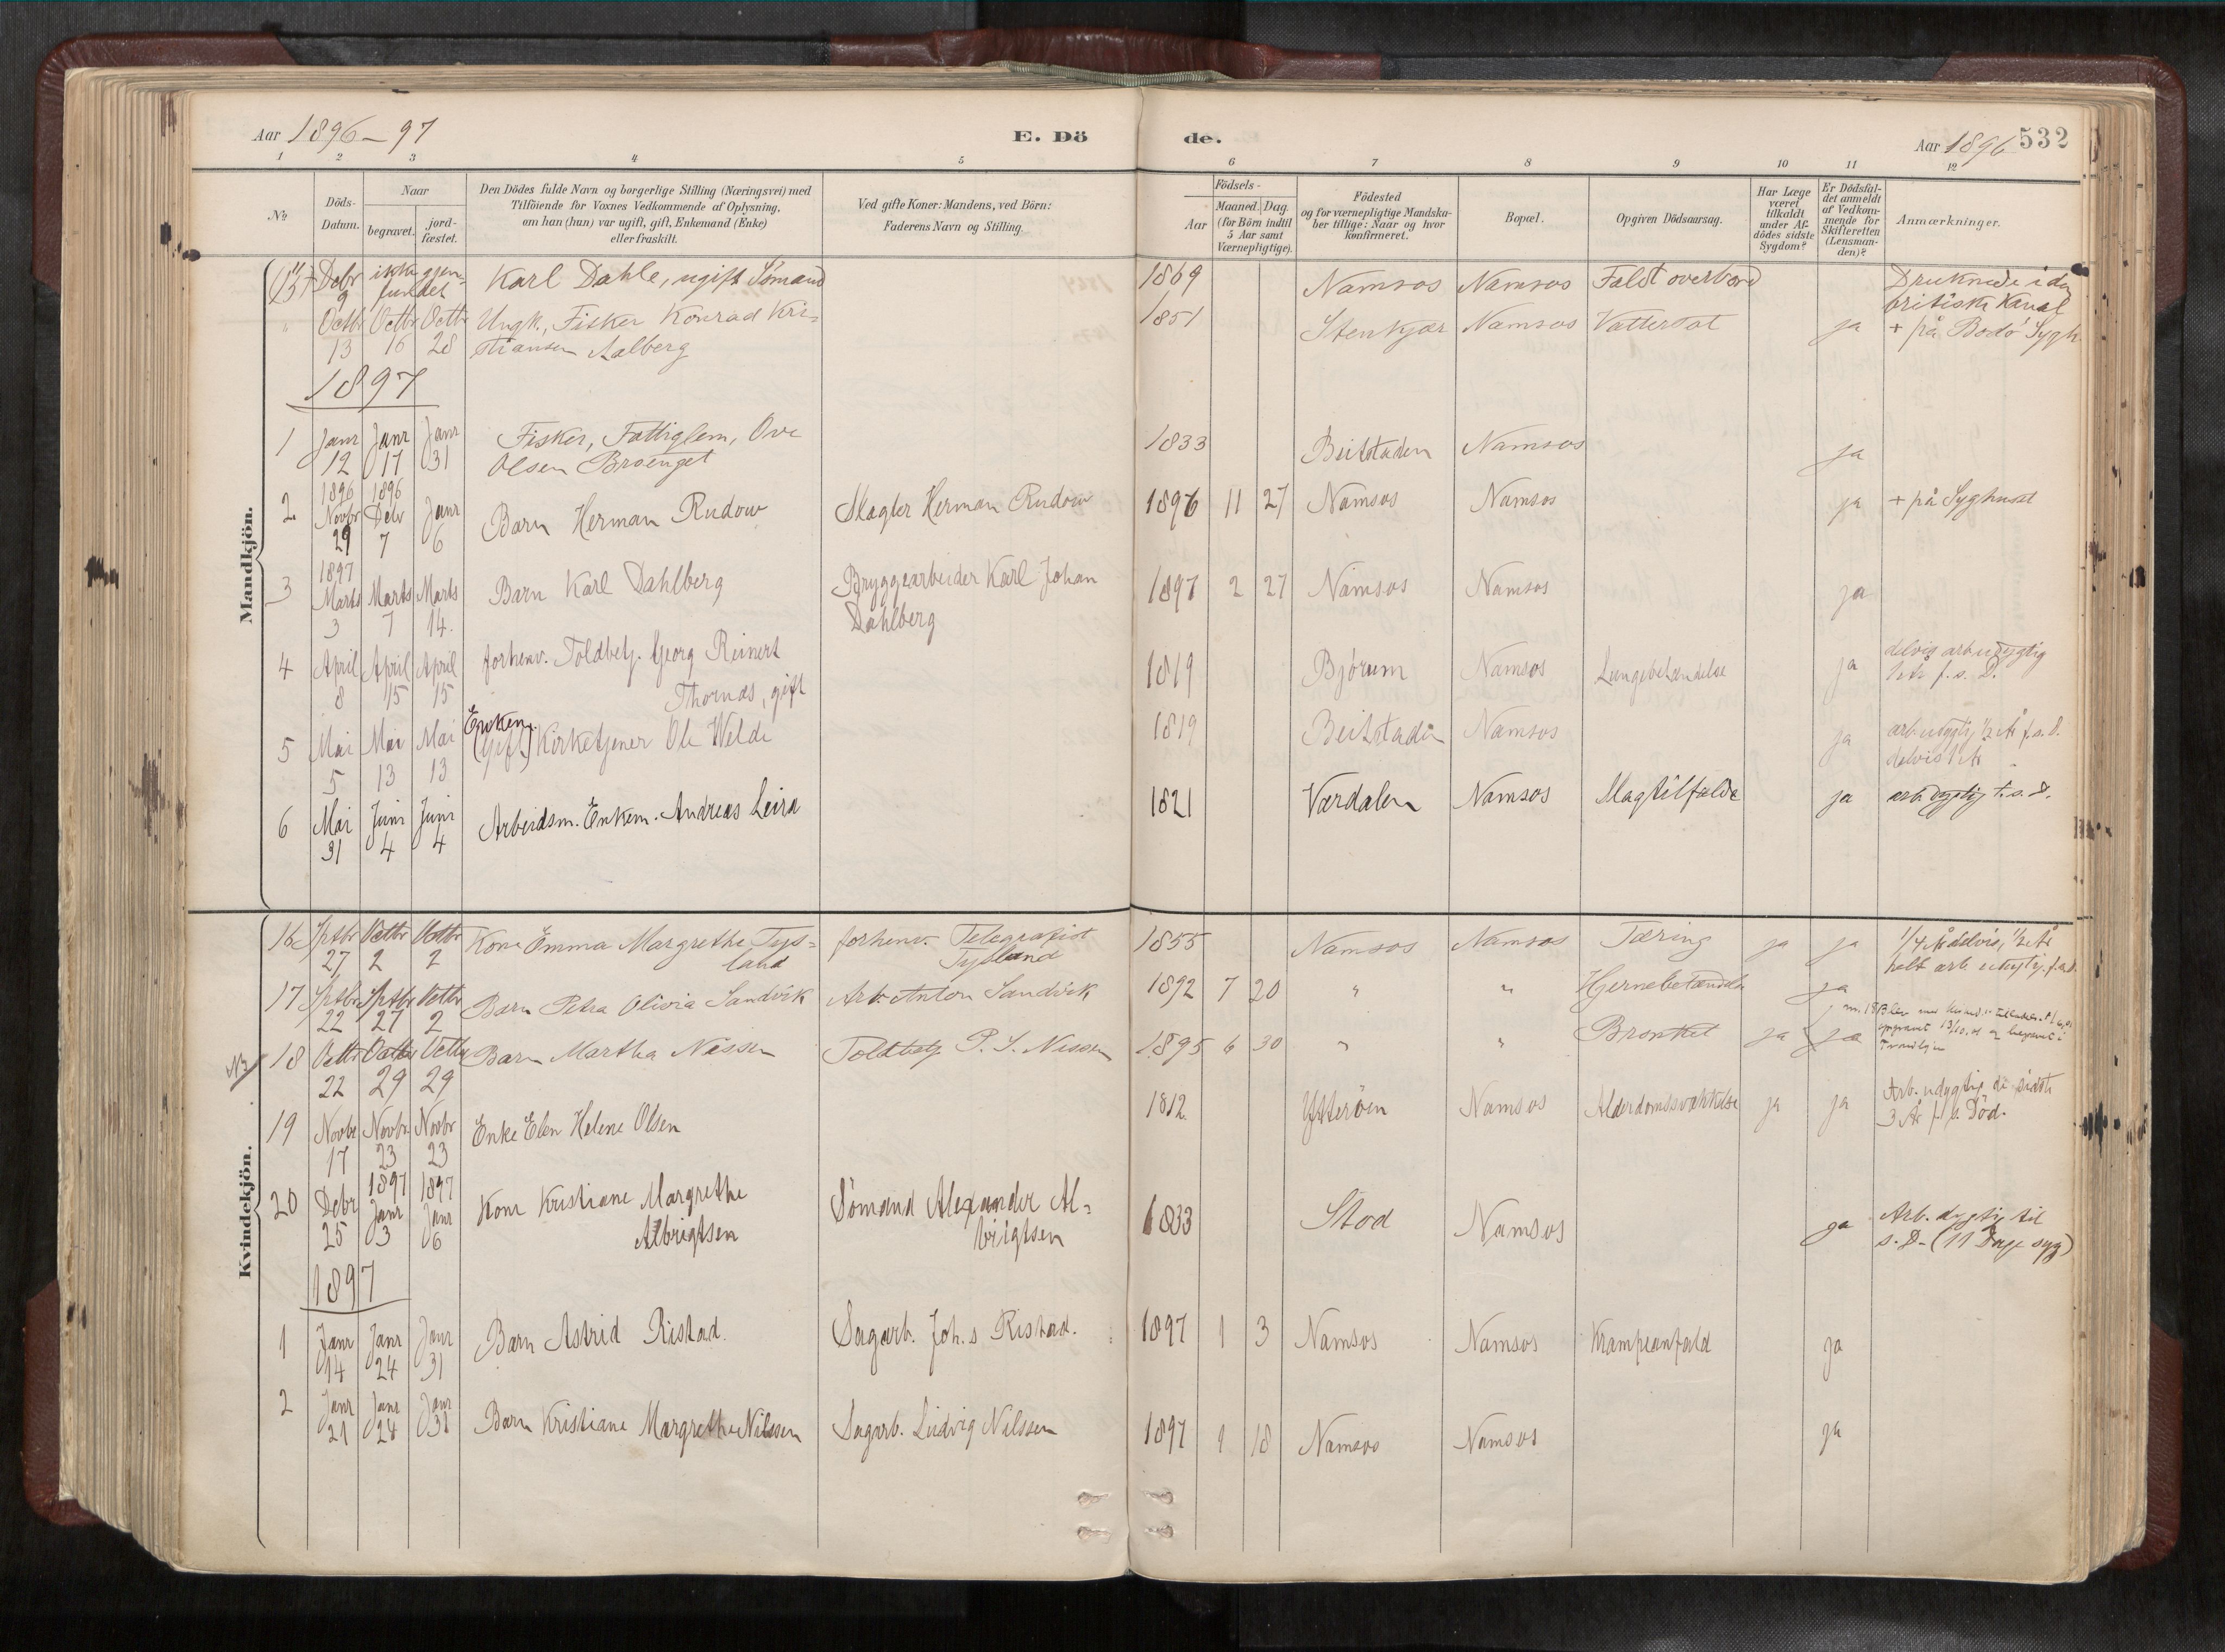 Aar 1896-97
E. Dö
de.
Aar 1896
532
1 2 3 4 5 6 7 8 9 10 11 12
No
Döds-
Datum.
Naar
begravet.
jord-
fæstet.
Den Dödes fulde Navn og borgerlige Stilling (Næringsvei) med
Tilföiende for Voxnes Vedkommende af Oplysning,
om han (hun) var ugift, gift, Enkemand (Enke)
eller fraskilt.
Ved gifte Koner: Mandens, ved Börn:
Faderens Navn og Stilling.
Födsels-
Aar
Maaned. Dag.
(for Börn indtil
5 Aar samt
Værnepligtige).
Födested
og for værnepligtige Mandska-
ber tillige: Naar og hvor
konfirmeret.
Bopæl.
Opgiven Dödsaarsag.
Har Læge
været
tilkaldt
under Af-
dödes sidste
Sygdom?
Er Dödsfal-
det anmeldt
af Vedkom-
mende for
Skifteretten
(Lensman-
den)?
Anmærkninger.
Mandkjön.
Debr 9 ikke gjen-
fundet
Karl Dahle, ugift Sömand 1869 Namsos Namsos Faldt overbord Druknede i den
britiske Kanal
Octbr 13 Octbr 16 Octbr 28 Ungk., Fisker Konrad Kri-
stiansen Aalberg
1851 Stenkjær Namsos Vattersot ja + på Bodö Sygh.
1897
1 Janr 12 Janr 17 Janr 31 Fisker, Fattiglem, Ove
Olsen Broenget
1833 Beitstaden Namsos ja
2 1896 Novbr 29 1896 Debr 7 Janr 6 Barn Herman Rudow Slagter Herman Rudow 1896 11 27 Namsos Namsos ja + på Syghuset
3 1897 Marts 3 Marts 7 Marts 14. Barn Karl Dahlberg Bryggearbeider Karl Johan
Dahlberg
1897 2 27 Namsos Namsos ja
4 April 8 April 15 April 15 forhenv. Toldbetj. Georg Reinert
Thornæs, gift
1819 Bjørum Namsos Lungebetændelse ja delvis arbudygtig
1 År f. s. D.
5 Mai 5 Mai 13 Mai 13 Enkem.
(Gift) Kirketjener Ole Welde
1819 Beitstaden Namsos ja arb.udygtig 1/2 År f. s. d.
delvis 1 År
6 Mai 31 Juni 4 Juni 4 Arbeidsm. Enkem. Andreas Leira 1821 Værdalen Namsos Slagtilfælde ja arb.dygtig t. s. d.
Kvindekjön.
16 Sptbr 27 Octbr 2 Octbr 2 Kone Emma Margrethe Tys-
land
forhenv. Telegrafist
Tysland
1855 Namsos Namsos Tæring ja ja 1/4 År delvis, 1/2 År
helt arb. udygtig. f. s. d.
17 Sptbr 22 Sptbr 27 Octbr 2 Barn Petra Olivia Sandvik Arb. Anton Sandvik 1892 7 20 " " Hjernebetændelse ja
18 Octbr 22 Octbr 29 Octbr 29 Barn Martha Nissen Toldbetj. P. S. Nissen 1895 6 30 " " Bronket ja ja
19 Novbr 17 Novbr 23 Novbr 23 Enke Elen Helene Olsen 1812 Ytterøen Namsos Alderdomssvækkelse ja ja Arb. udygtig de sidste
3 År f. s. Död.
20 Debr 25 1897 Janr 3 1897 Janr 6 Kone Kristiane Margrethe
Albrigtsen
Sömand Alexander Al-
brigtsen
1833 Stod Namsos ja Arb. dygtig til
s. D. (11 Dage syg)
1897
1 Janr 14 Janr 24 Janr 31 Barn Astrid Ristad. Sagarb. Joh.s Ristad. 1897 1 3 Namsos Namsos Krampeanfald ja
2 Janr 21 Janr 24 Janr 31 Barn Kristiane Margrethe Nilssen Sagarb. Ludvig Nilssen 1897 1 18 Namsos Namsos ja